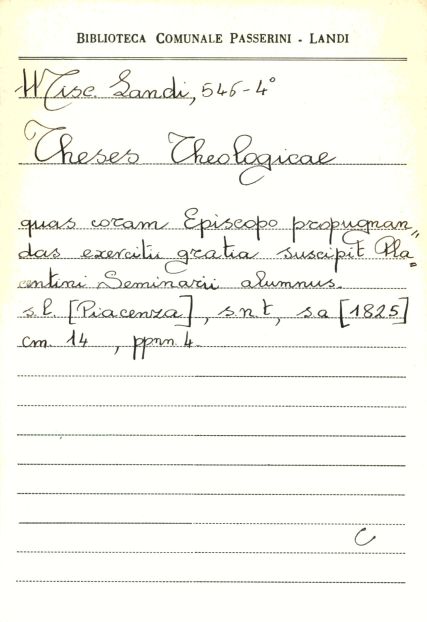 BIBLIOTECA COMUNALE PASSERINI - LANDI
Misc. Landi, 546-4°
Theses Theologicae
quas coram Episcopo propugnan„
das exercitii gratia suscipit Pla„
centini Seminarii alumnus.
s.l. [Piacenza], s.n.t, s.a [1825]
cm. 14 , ppnn 4.
C